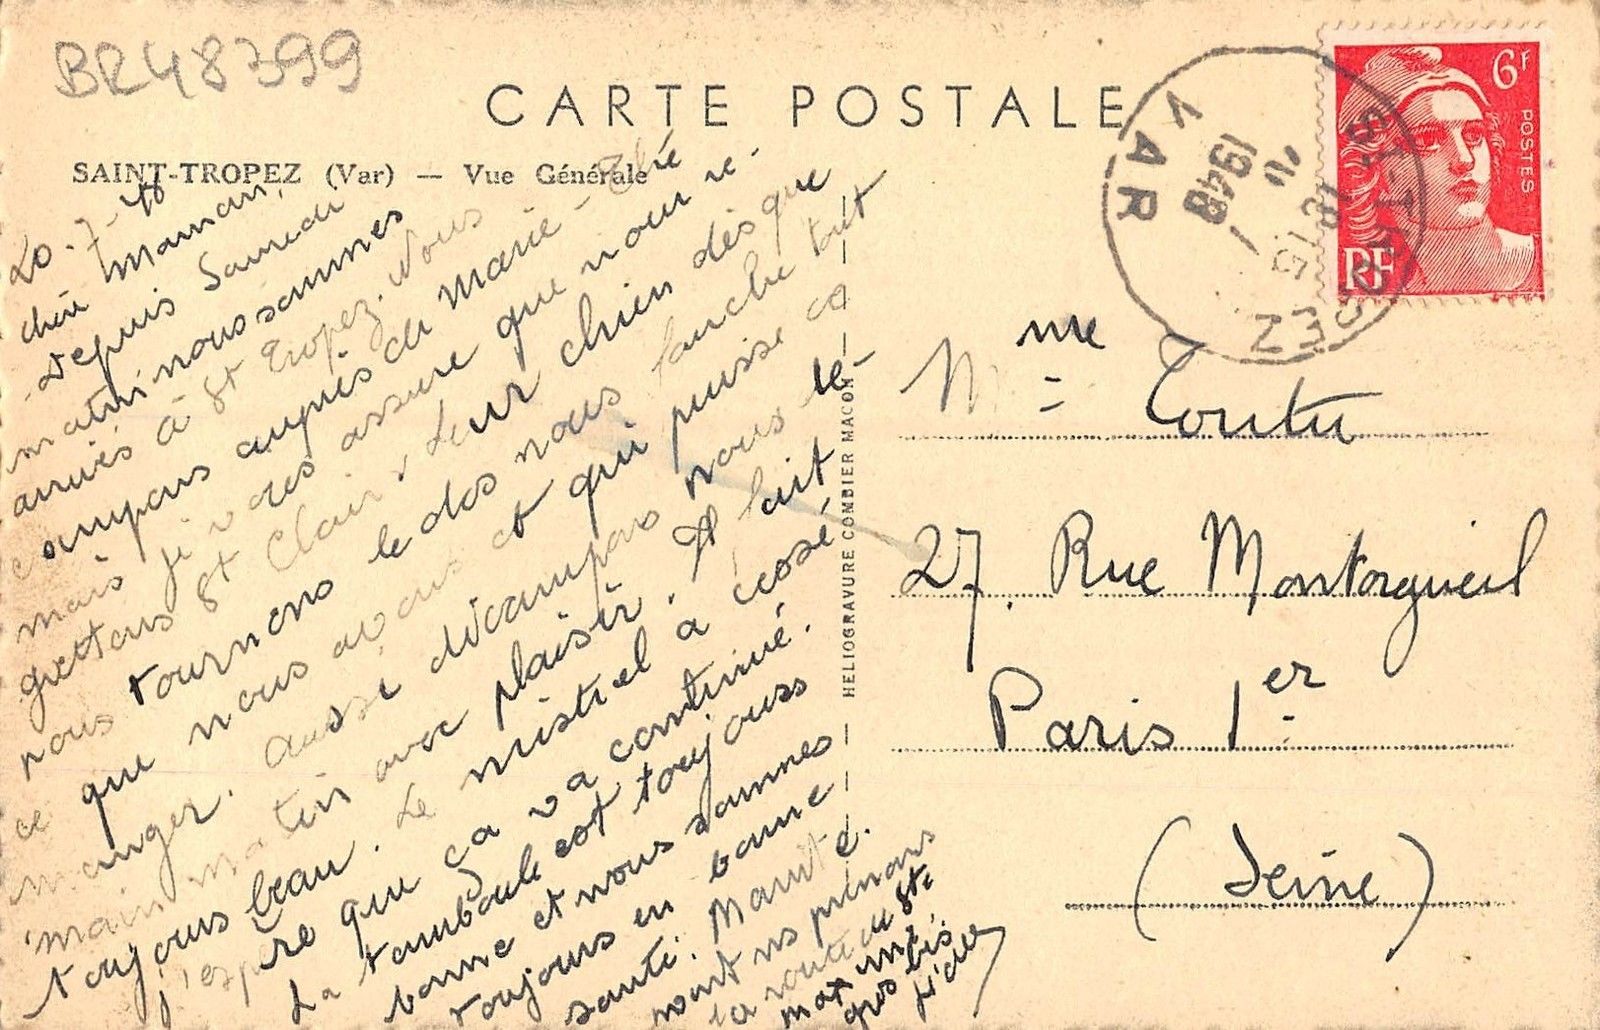 BR48399
CARTE POSTALE
SAINT-TROPEZ (Var) — Vue Générale
20-7-48
chère Maman,
Depuis Samedi
matin nous sommes
arrivés à St Tropez. Nous
campons auprès de Marie-Thé
mais je vous assure que nous re-
grettons St Clair, leur chien dès que
nous tournons le dos nous fauche tout
ce que nous avons et qui puisse ca
manger. Aussi décampons nous
matin avec plaisir. Il fait
toujours beau. Le mistral a cessé
j'espère que ça va continué.
La tamboule est toujours
bonne et nous sommes
toujours en bonne
santé.
nous prenons
la route de Ste
Max
gros bis
6F
POSTES
RF
ST-TROPEZ
VAR
1948
HELIOGRAVURE COMBIER MACON
Mme Coutu
27. Rue Montorgueil
Paris 1er
(Seine)